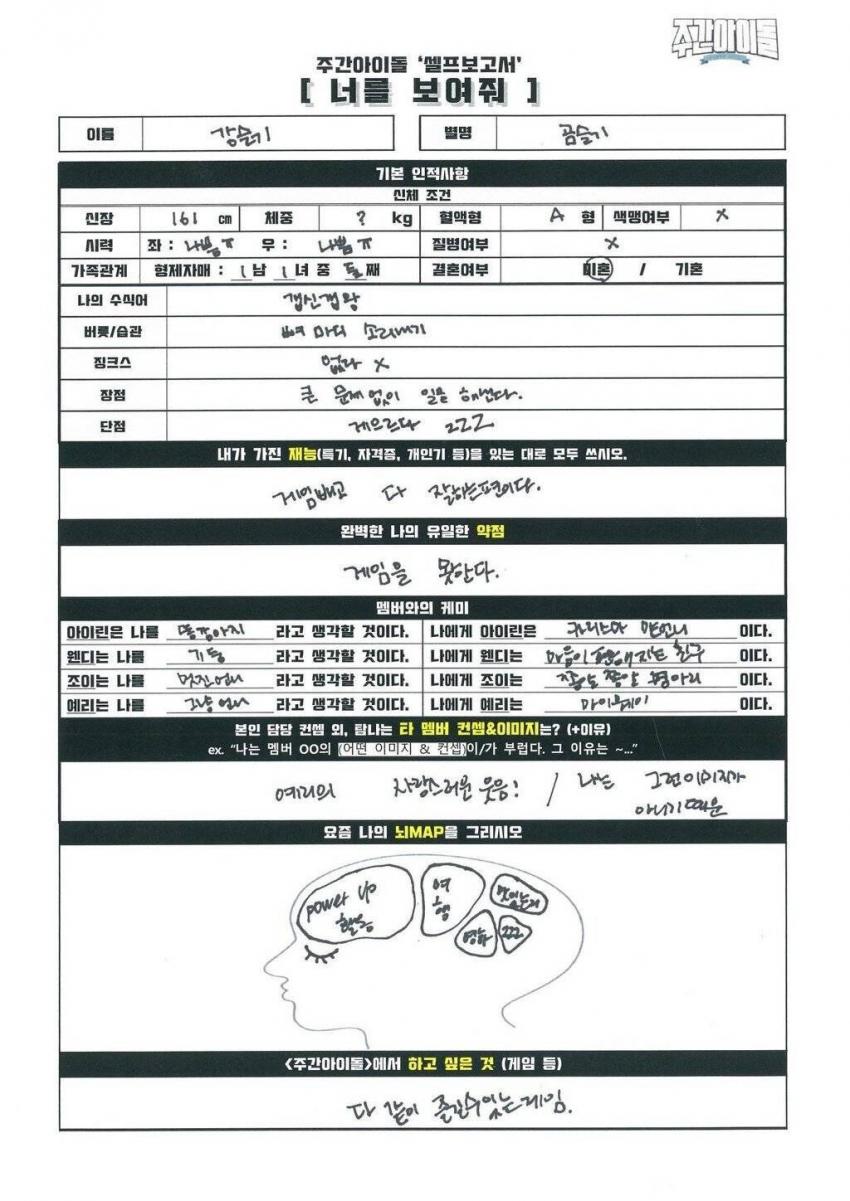 주간아이돌
주간아이돌 '셀프보고서'
[ 너를 보여줘 ]
이름 강슬기 별명 곰슬기
기본 인적사항
신체 조건
신장 161 cm 체중 ? kg 혈액형 A 형 색맹여부 X
시력 좌 : 나쁨ㅠ 우 : 나쁨ㅠ 질병여부 X
가족관계 형제자매 : 1 남 1 녀 중 둘 째 결혼여부 미혼 / 기혼
나의 수식어 갭신갭왕
버릇/습관 뼈 마디 소리내기
징크스 없다 X
장점 큰 문제없이 일을 해낸다.
단점 게으르다 zzz
내가 가진 재능(특기, 자격증, 개인기 등)을 있는 대로 모두 쓰시오.
게임빼고 다 잘하는편이다.
완벽한 나의 유일한 약점
게임을 못한다.
멤버와의 케미
아이린은 나를 똥강아지 라고 생각할 것이다. 나에게 아이린은 카리스마 맏언니 이다.
웬디는 나를 기둥 라고 생각할 것이다. 나에게 웬디는 마음이 편해지는 친구 이다.
조이는 나를 멋진언니 라고 생각할 것이다. 나에게 조이는 쫑알쫑알 병아리 이다.
예리는 나를 그냥언니 라고 생각할 것이다. 나에게 예리는 마이웨이 이다.
본인 담당 컨셉 외, 탐나는 타 멤버 컨셉&이미지는? (+이유)
ex. "나는 멤버 OO의 (어떤 이미지 & 컨셉)이/가 부럽다. 그 이유는 ~..."
예리의 사랑스러운 웃음! / 나는 그런이미지가
아니기 때문
요즘 나의 뇌MAP을 그리시오
power up
활동
여
행
맛있는거
영화
zzz
<주간아이돌>에서 하고 싶은 것 (게임 등)
다 같이 즐길수있는게임.